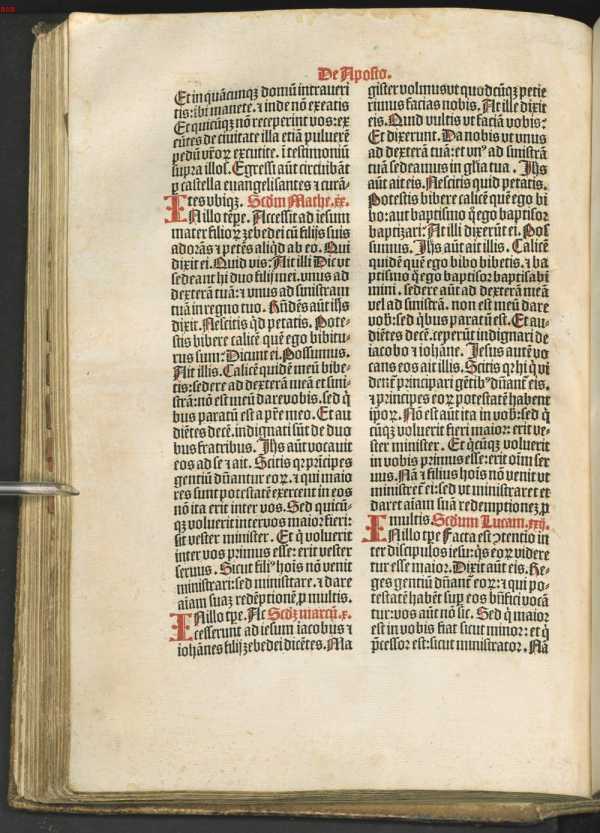 De Aposto.
Et in quācunqꝫ domū intraueri
tis: ibi manete. ⁊ inde nō exeatis
Et quicūqꝫ nō receperint vos: ex
eūtes de ciuitate illa etiā puluerē
pedū vr̄oꝝ excutite. ī testimoniū
supra illos. Egressi aūt circūibāt
ꝑ castella euangelisantes ⁊ curā-
tes vbiqꝫ. Scd̄m Mathe. xx.
IN illo tēpe. Accessit ad iesum
mater filioꝝ zebedei cū filijs suis
adorās ⁊ petēs aliqd ab eo. Qui
dixit ei. Quid vis: Ait illi Dic vt
sedeant hi duo filij mei. vnus ad
dexterā tuā: ⁊ vnus ad sinistram
tuā in regno tuo. Rn̄dēs aūt ih̄s
dixit. Nescitis qd petatis. Pote-
stis bibere calicē quē ego bibitu-
rus sum: Dicunt ei. Possumus.
Ait illis. Calicē quidē meū bibe-
tis: sedere ad dexterā meā et sini-
strā: nō est meū dare vobis. sed q̄
bus paratū est a pr̄e meo. Et au
diētes decē. indignati sūt de duo
bus fratribus. Ih̄s aūt vocauit
eos ad se ⁊ ait. Scitis qꝛ prīcipes
gentiū dn̄antur eoꝝ. ⁊ qui maio
res sunt potestatē exercent in eos
nō ita erit inter vos. Sed quicū-
qꝫ voluerit inter vos maior fieri:
sit vester minister. Et q̄ voluerit
inter vos primus esse: erit vester
seruus. Sicut filiꝰ hoīs nō venit
ministrari: sed ministrare. ⁊ dare
aīam suaꝫ redēptionē ꝓ multis.
IN illo tpe. Ac Scd̄ꝫ marcū. x.
cesserunt ad iesum iacobus ⁊
iohānes filij zebedei dicētes. Ma
gister volumus vt quodcūqꝫ petie
rimus facias nobis. At ille dixit
eis. Quid vultis vt faciā vobis:
Et dixerunt. Da nobis vt vnus
ad dexterā tuā: et vnꝰ ad sinistrā
tuā sedeamus in gl̄ia tua. Ih̄s
aūt ait eis. Nescitis quid petatis.
Potestis bibere calicē quē ego bi
bo: aut baptismo q̄ ego baptisor
baptizari: At illi dixerūt ei. Pos
sumus. Ih̄s aūt ait illis. Calicē
quidē quē ego bibo bibetis. ⁊ ba
ptismo q̄ ego baptisor baptisabi
mini. sedere aūt ad dexterā meā
vel ad sinistrā. non est meū dare
vob̄: sed q̄bus paratū est. Et au-
diētes decē. ceperūt indignari de
iacobo ⁊ iohāne. Jesus autē vo
cans eos ait illis. Scitis qꝛ hi q̄ vi
dent̄ principari gētibꝰ dn̄ant̄ eis.
⁊ principes eoꝝ potestatē habent
ip̄oꝝ. Nō est aūt ita in vob̄: sed q̄
cūqꝫ voluerit fieri maior: erit ve-
ster minister. Et q̄cūqꝫ voluerit
in vobis primus esse: erit oīm ser
uus. Nā ⁊ filius hoīs nō venit vt
ministret̄ ei: sed vt ministraret et
daret aīam suā redemptionez ꝓ
multis. Scd̄um Lucam. xxij.
IN illo tpe Facta est ↄtentio in
ter discipulos iesu: q̄s eoꝝ videre
tur esse maior. Dixit aūt eis. Re-
ges gentiū dn̄ant̄ eoꝝ: ⁊ qui po-
testatē habēt sup̄ eos bn̄fici vocā
tur: vos aūt nō sic. Sed q̄ maior
est in vobis fiat sicut minor: et q̄
p̄cessor est: sicut ministrator. Nā